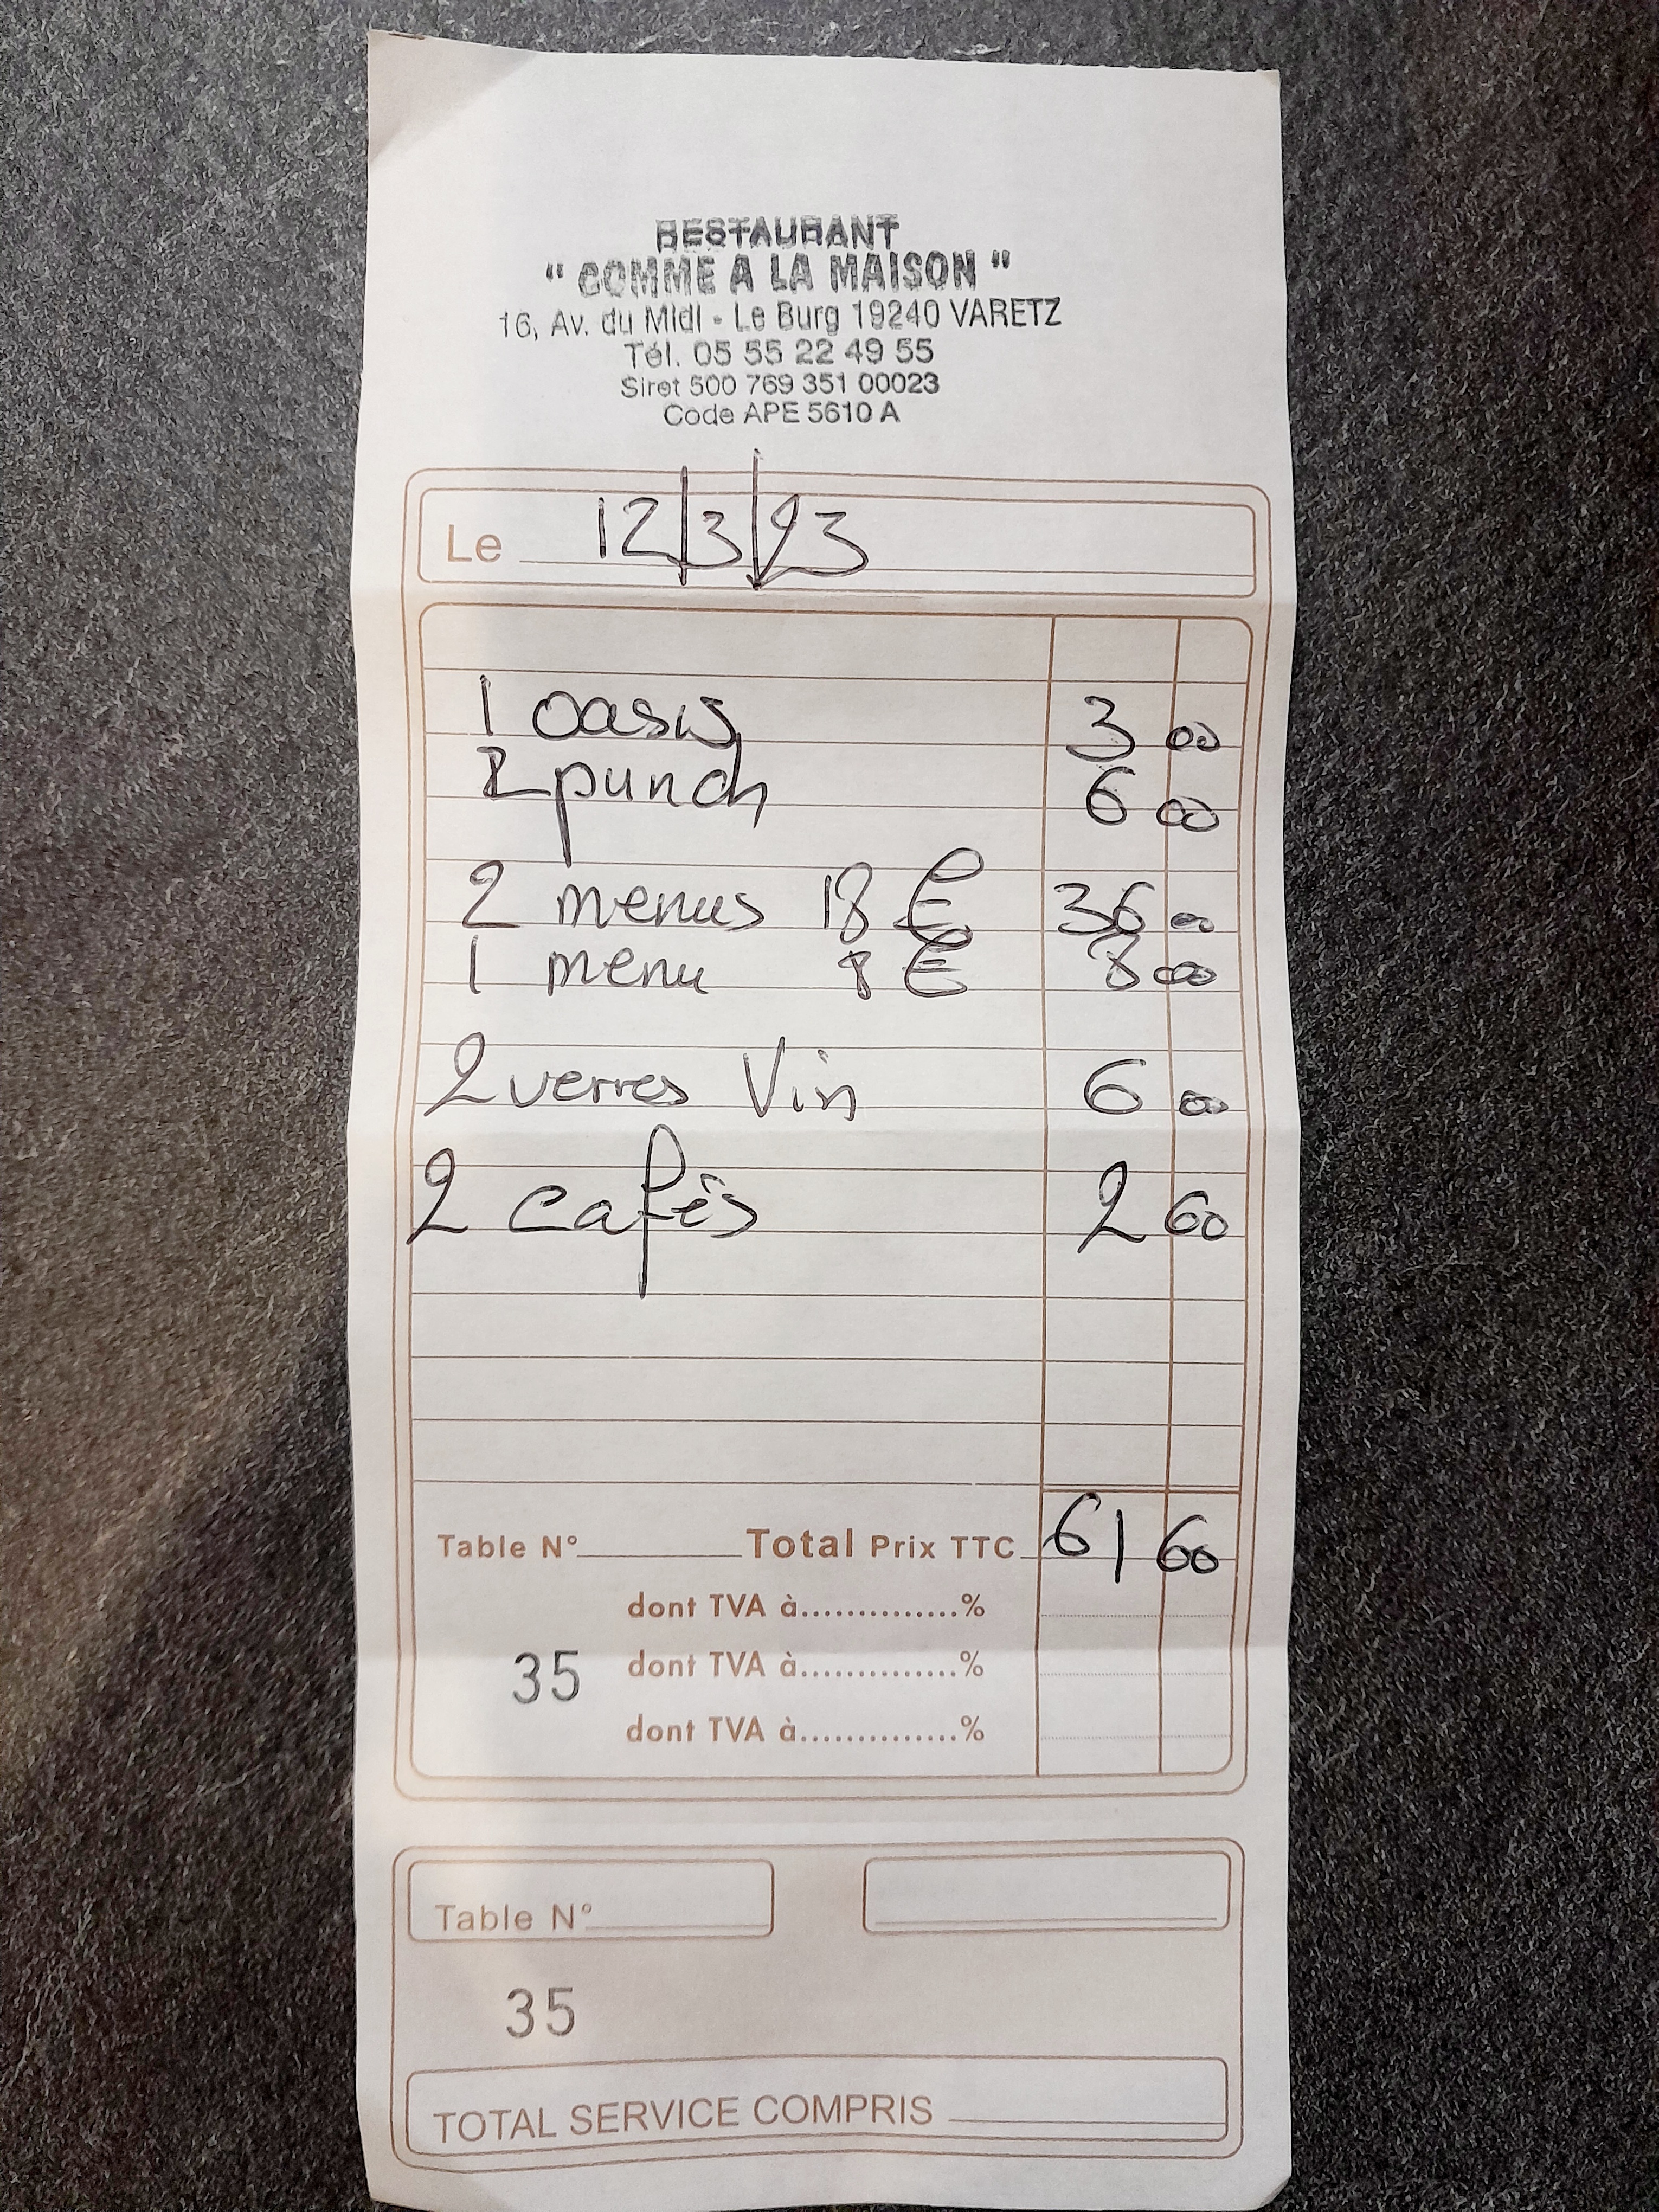 RESTAURANT
" COMME A LA MAISON "
16, Av. du Midi - Le Burg 19240 VARETZ
Tél. 05 55 22 49 55
Siret 500 769 351 00023
Code APE 5610 A
Le 12/3/23
1 oasis 3 00
2 punch 6 00
2 menus 18 € 36 00
1 menu 8 € 8 00
2 verres Vin 6 00
2 cafés 2 60
Table N° Total Prix TTC 61 60
dont TVA à..............%
35 dont TVA à..............%
dont TVA à..............%
Table N°
35
TOTAL SERVICE COMPRIS